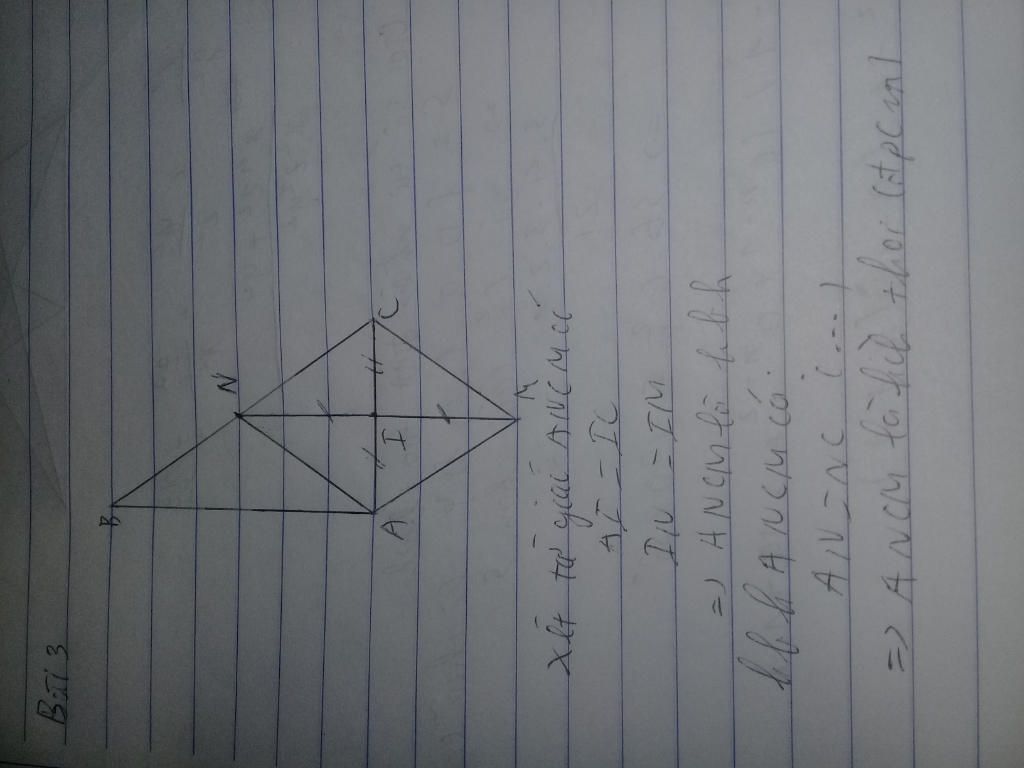 BÀI 3
B
N
A
I
C
M
Xét tứ giác ANCM có
AI = IC
IN = IM
=> ANCM là hbh
hbh ANCM có:
AN = NC (...)
=> ANCM là hình thoi (đpcm)